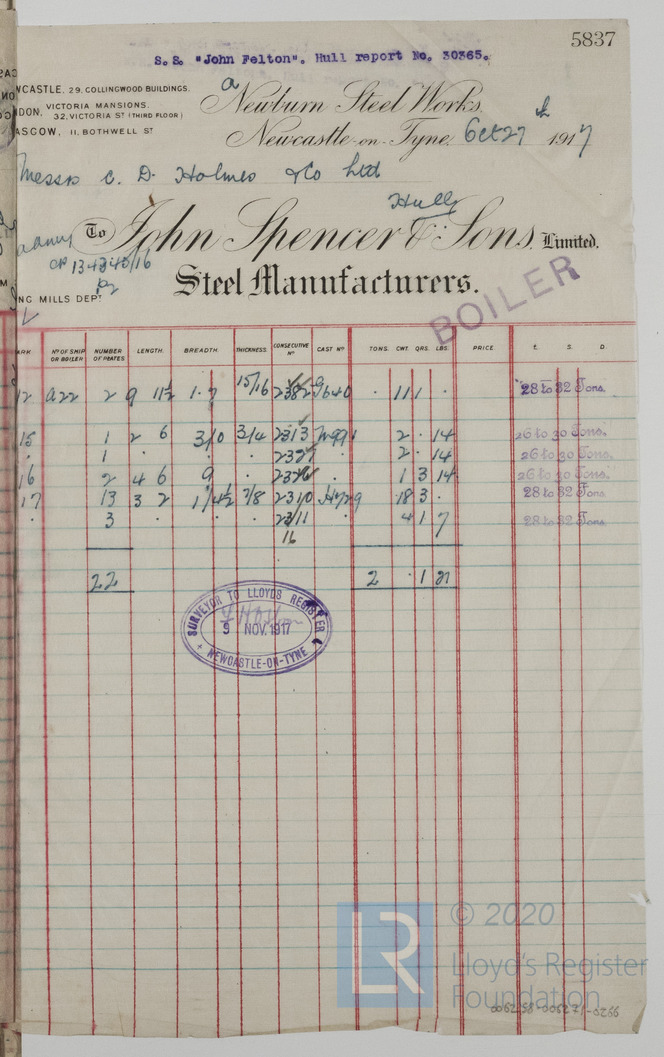 5837
S.S. "John Felton". Hull report No. 30365.
NCASTLE, 29, COLLINGWOOD BUILDINGS.
NDON, VICTORIA MANSIONS.
32, VICTORIA ST (THIRD FLOOR)
ASGOW, 11, BOTHWELL ST
a
Newburn Steel Works,
Newcastle-on-Tyne, Oct 27th 1917
Messrs C. D. Holmes & Co Ltd
Hull
To John Spencer & Sons, Limited.
Steel Manufacturers.
NG MILLS DEPT
BOILER
ARK Nº OF SHIP OR BOILER NUMBER OF PLATES LENGTH. BREADTH. THICKNESS. CONSECUTIVE Nº CAST Nº TONS. CWT. QRS. LBS. PRICE. £. S. D.
12 A22 2 9 11½ 1·7 15/16 2382 9640 . 11 1 . 28 to 32 Tons.
15 1 2 6 3/0 3/4 2313 2 . 14 26 to 30 Tons.
. 1 . . . . 2327 . 2 . 14 26 to 30 Tons.
16 2 4 6 9 . 2326 . 1 3 14 26 to 30 Tons.
17 13 3 2 1/4½ 7/8 2310 18 3 . 28 to 32 Tons
. 3 . . . . 2311 . 4 1 7 28 to 32 Tons
16
22 2 . 1 21
SURVEYOR TO LLOYDS REGISTER
9 NOV. 1917
NEWCASTLE-ON-TYNE
LR
© 2020
Lloyd's Register
Foundation
006258-006271-0266